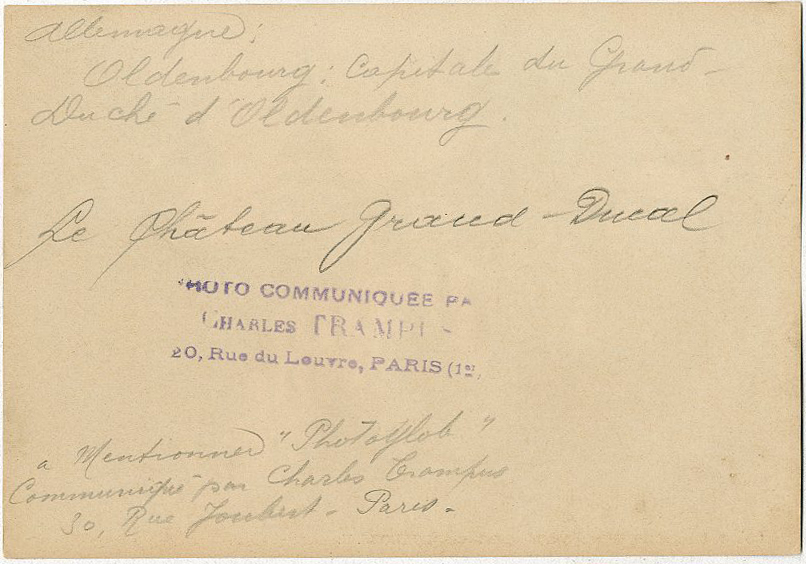 Allemagne:
Oldenbourg: Capitale du Grand-
Duché d'Oldenbourg.
Le Château Grand-Ducal
PHOTO COMMUNIQUEE PA
CHARLES TRAMPUS
20, Rue du Louvre, PARIS (1er
a Mentionner "Photoglob"
Communiqué par Charles Trampus
30, Rue Joubert - Paris -